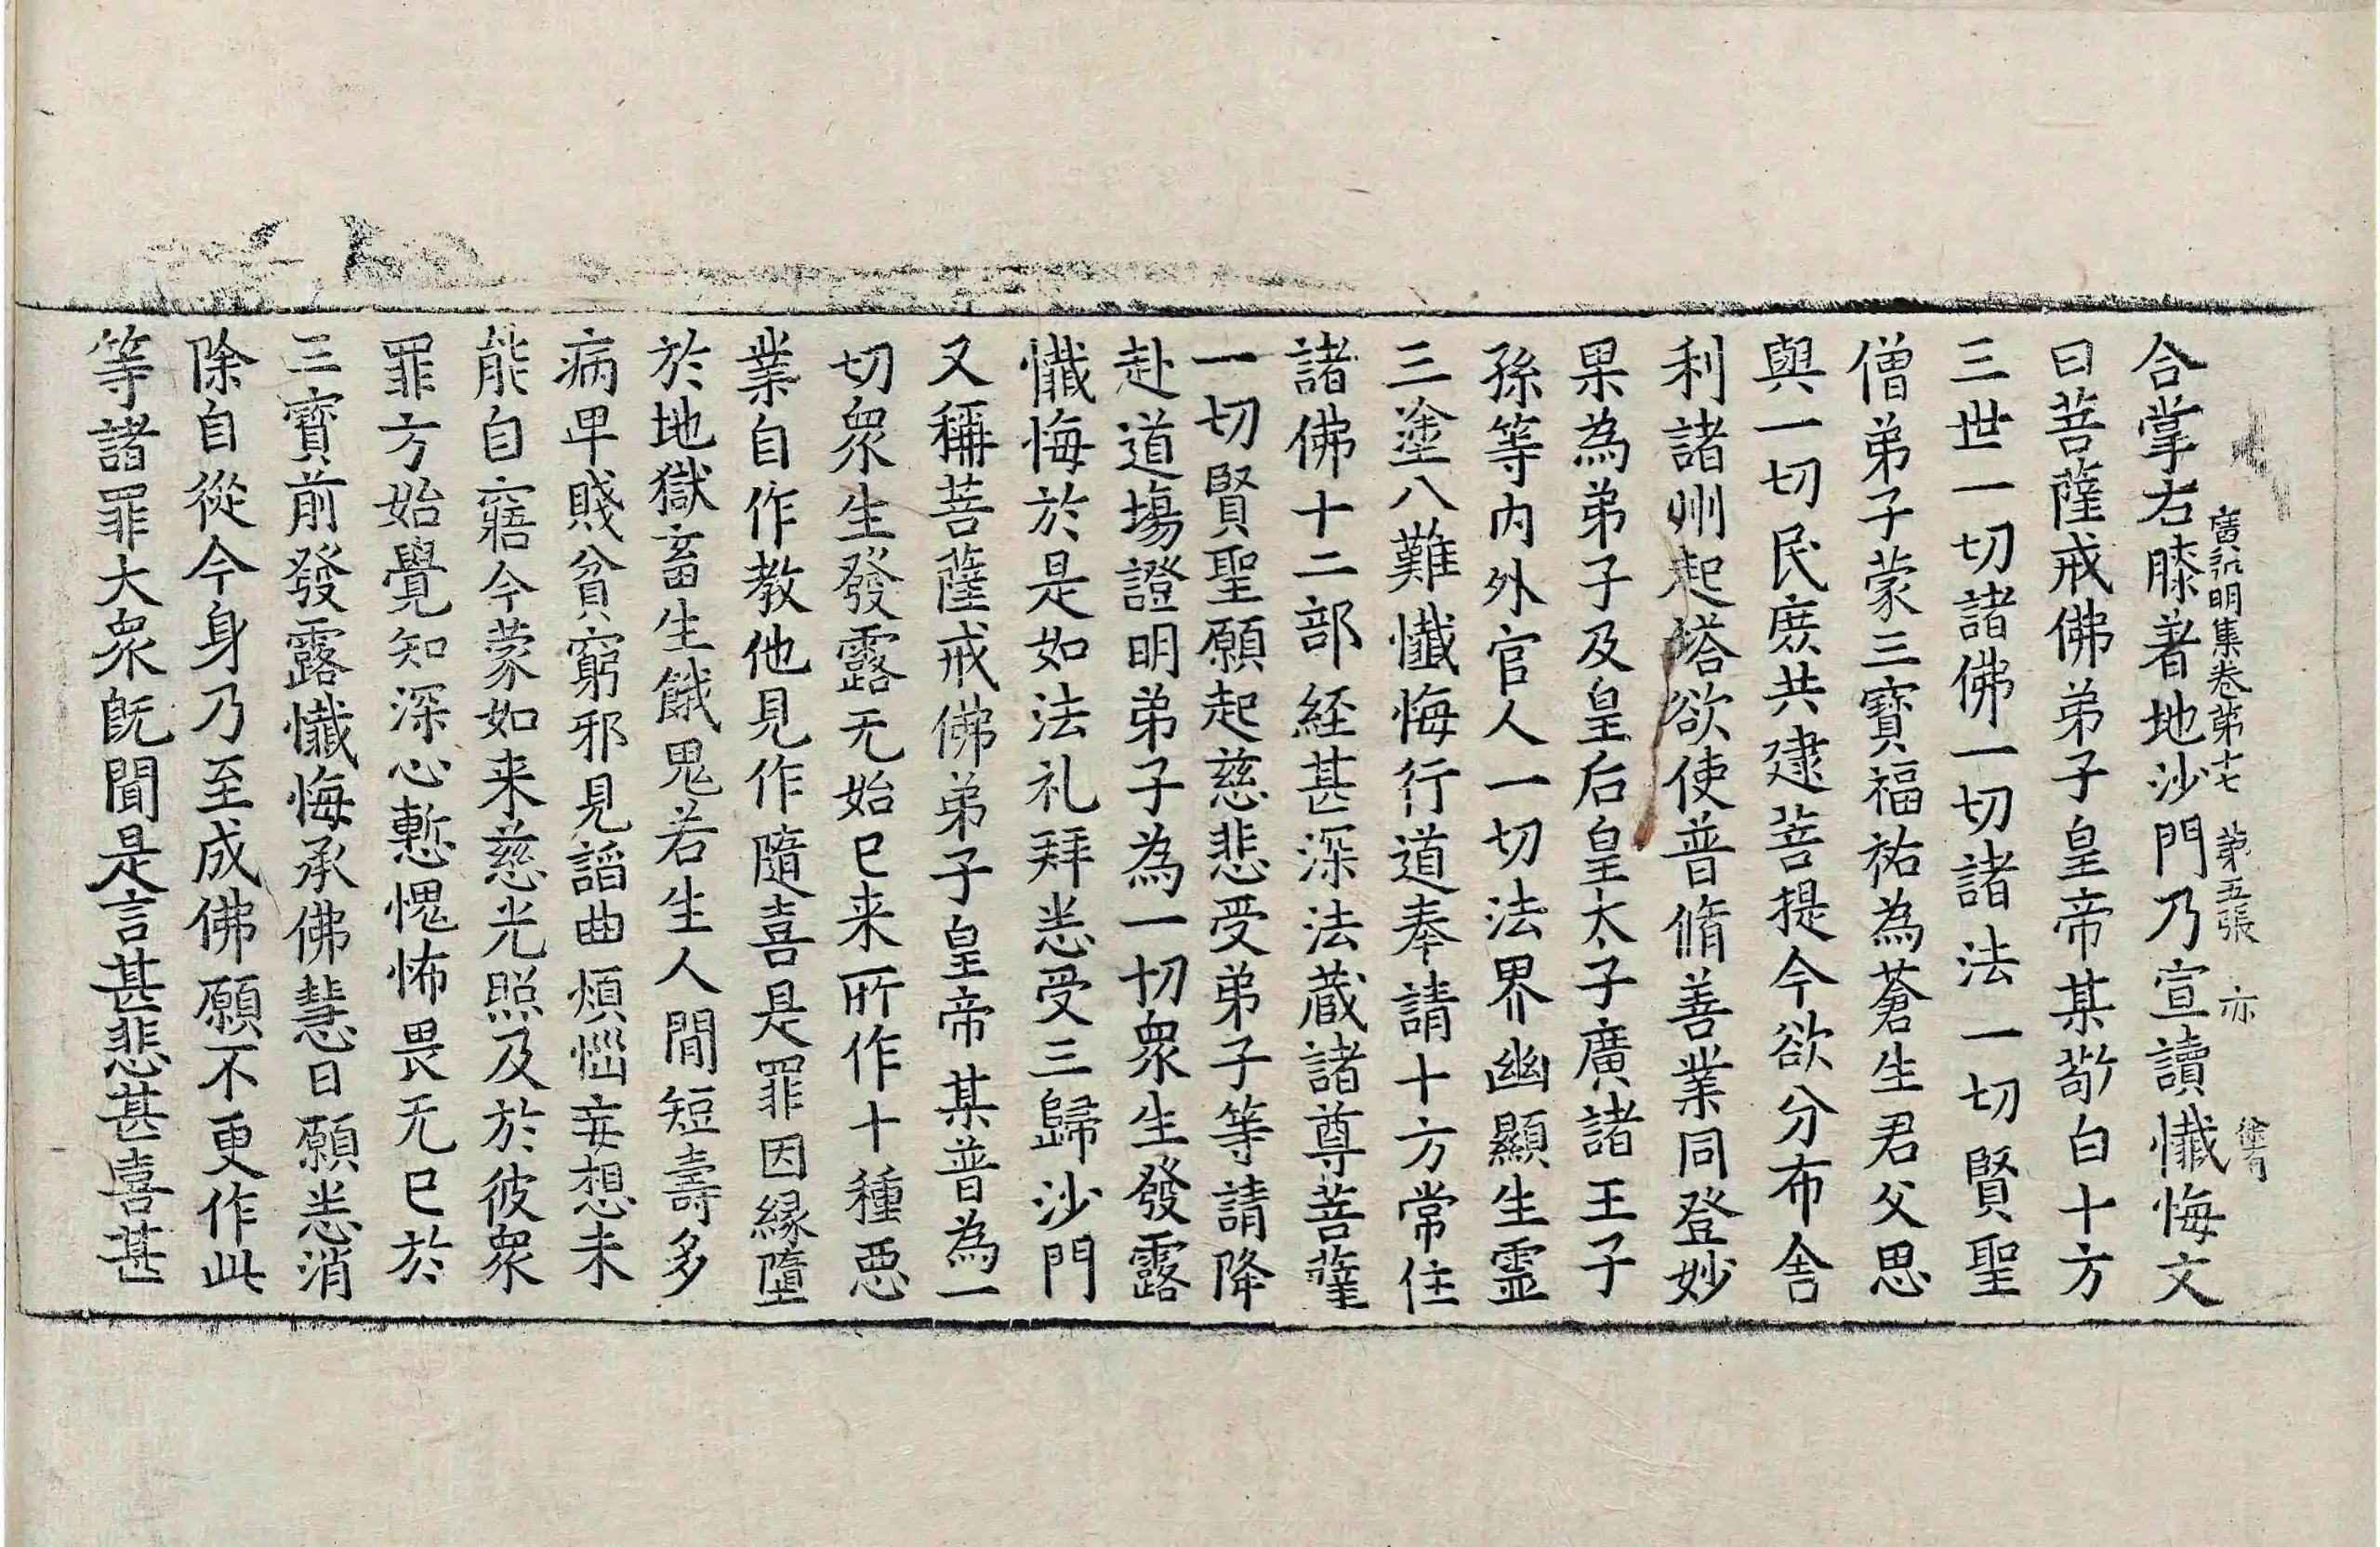 廣弘明集卷第十七 第五張 亦
合掌右膝著地沙門乃宣讀懺悔文
曰菩薩戒佛弟子皇帝某敬白十方
三世一切諸佛一切諸法一切賢聖
僧弟子蒙三寶福祐為蒼生君父思
與一切民庶共建菩提今欲分布舍
利諸州起塔欲使普脩善業同登妙
果為弟子及皇后皇太子廣諸王子
孫等內外官人一切法界幽顯生霊
三塗八難懺悔行道奉請十方常住
諸佛十二部経甚深法蔵諸尊菩薩
一切賢聖願起慈悲受弟子等請降
赴道場證明弟子為一切衆生發露
懺悔於是如法礼拜悉受三歸沙門
又稱菩薩戒佛弟子皇帝某普為一
切衆生發露无始已来所作十種惡
業自作教他見作隨喜是罪因緣墮
於地獄畜生餓鬼若生人間短壽多
病卑賤貧窮邪見諂曲煩惱妄想未
能自寤今蒙如来慈光照及於彼衆
罪方始覺知深心慙愧怖畏无已於
三寶前發露懺悔承佛慧日願悉消
除自從今身乃至成佛願不更作此
等諸罪大衆既聞是言甚悲甚喜甚